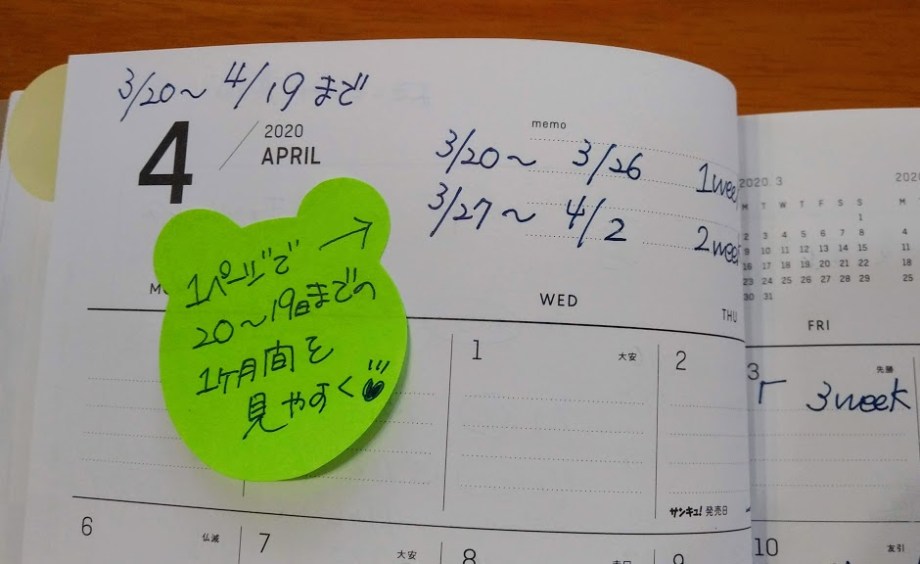 3/20～4/19まで
4 / 2020 APRIL
memo
3/20～ 3/26 1wee
3/27～ 4/2 2wee
1ページで
20～19日までの
1ヶ月間を
見やすく
WED
THU
FRI
2020. 3
M T W T F S S
1
2 3 4 5 6 7 8
9 10 11 12 13 14 15
16 17 18 19 20 21 22
23 24 25 26 27 28 29
30 31
202
M
4
11
18
25
1 大安
2
サンキュ!発売日
3 先勝
3week
6 仏滅
7 大安
8
9
10 友引